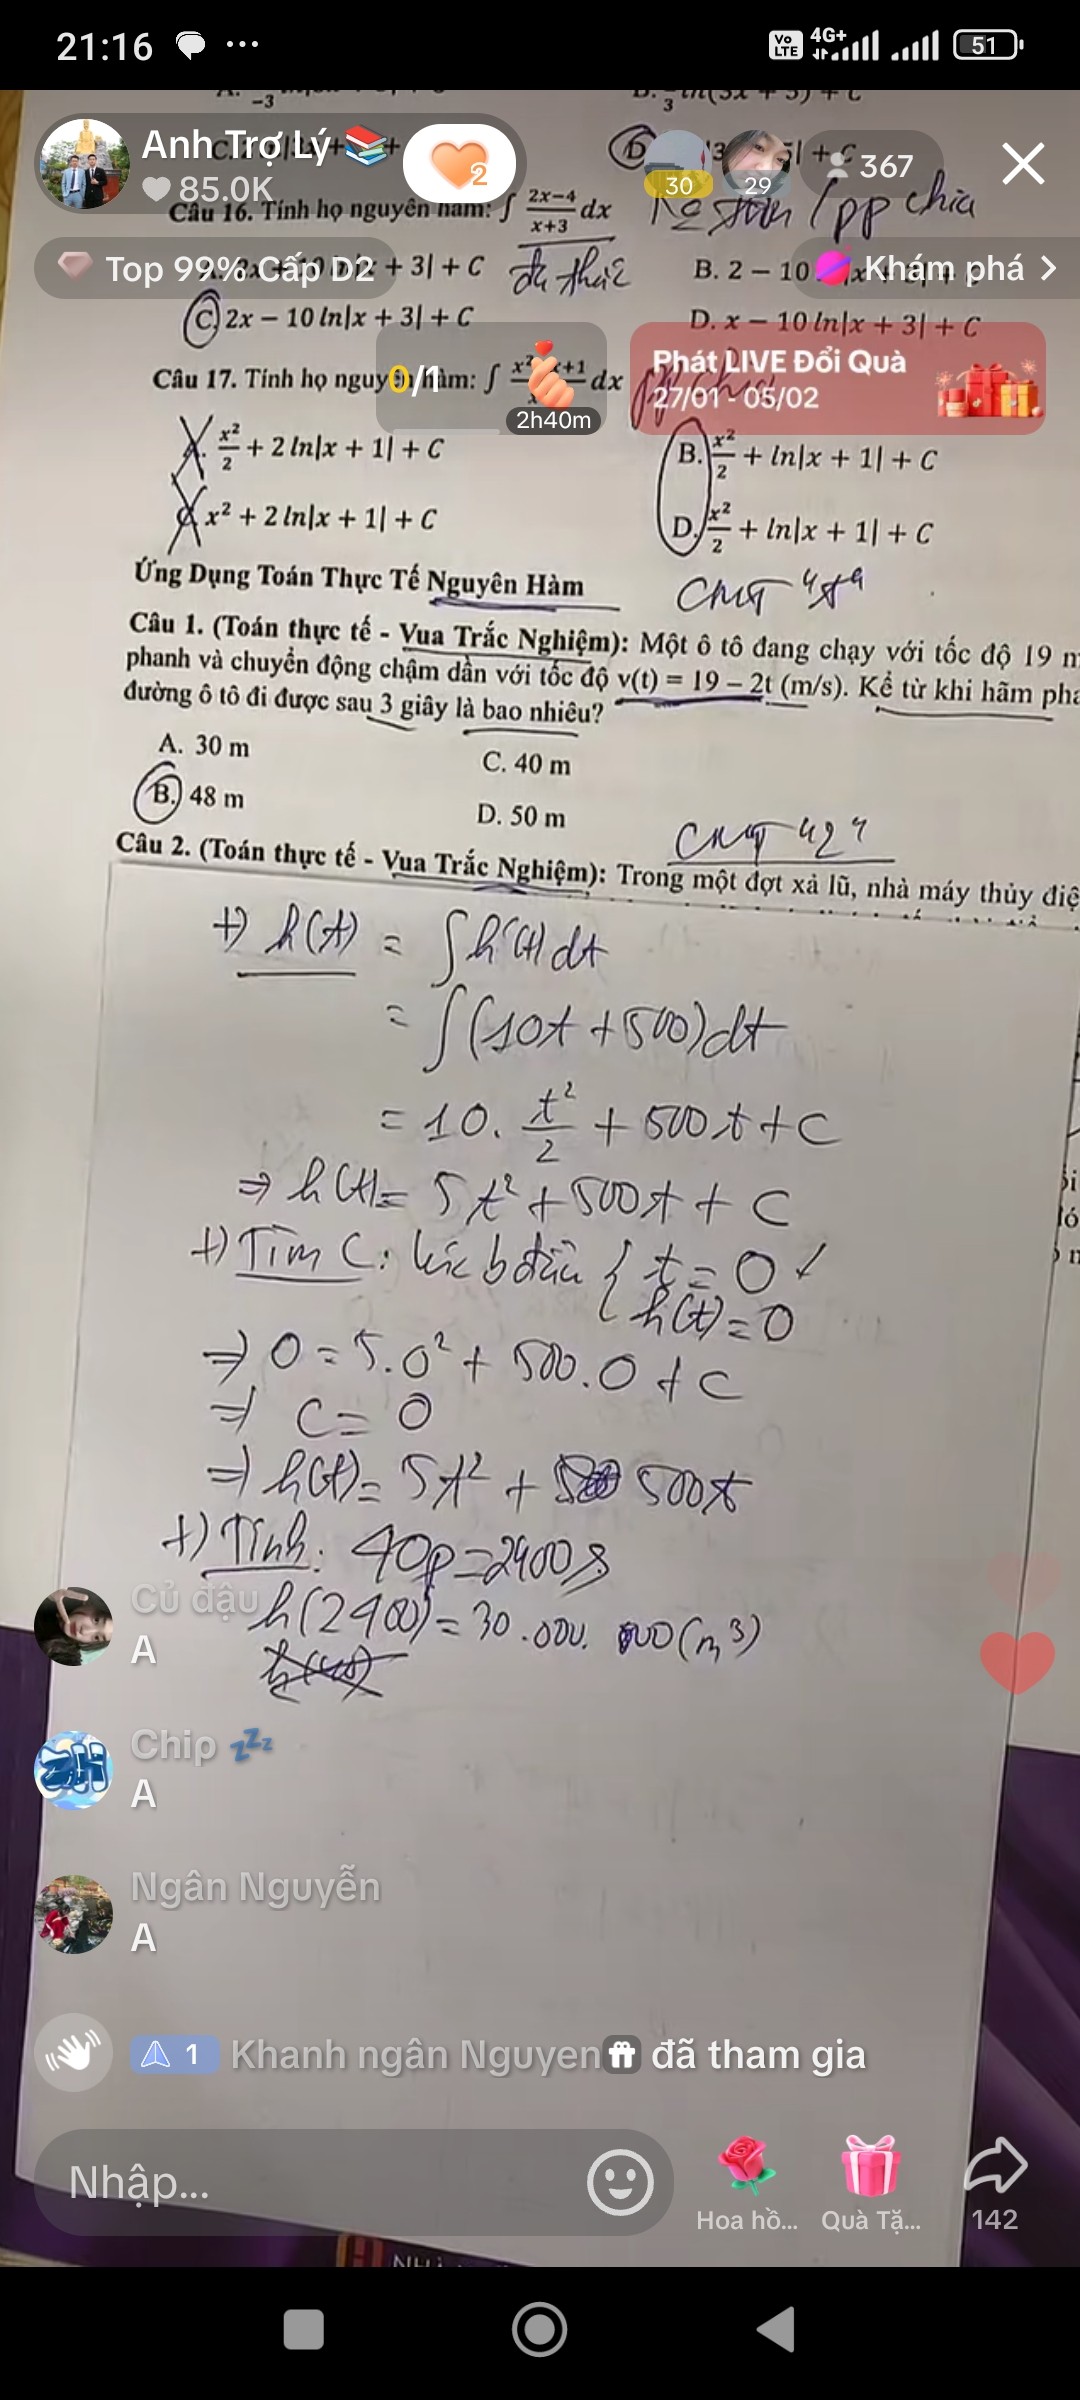 21:16 ...
Vo LTE 4G+ 51
Anh Trợ Lý
85.0K
2
30
29
367
Câu 16. Tính họ nguyên hàm: ∫ (2x−4)/(x+3) dx
pp chia
Top 99% Cấp D2
+ 3| + C
đa thức
B. 2 − 10
Khám phá >
C. 2x − 10 ln|x + 3| + C
D. x − 10 ln|x + 3| + C
Phát LIVE Đổi Quà
27/01 - 05/02
0/1
2h40m
Câu 17. Tính họ nguyên hàm: ∫ dx
A. x²/2 + 2 ln|x + 1| + C
B. x²/2 + ln|x + 1| + C
x² + 2 ln|x + 1| + C
D. x²/2 + ln|x + 1| + C
Ứng Dụng Toán Thực Tế Nguyên Hàm
Câu 1. (Toán thực tế - Vua Trắc Nghiệm): Một ô tô đang chạy với tốc độ 19
phanh và chuyển động chậm dần với tốc độ v(t) = 19 − 2t (m/s). Kể từ khi hãm
đường ô tô đi được sau 3 giây là bao nhiêu?
A. 30 m
C. 40 m
B. 48 m
D. 50 m
Câu 2. (Toán thực tế - Vua Trắc Nghiệm): Trong một đợt xả lũ, nhà máy thủy
+) h(t) = ∫h'(t)dt
= ∫(10t + 500)dt
= 10. t²/2 + 500t + C
⇒ h(t) = 5t² + 500t + C
+) Tìm C: lúc b đầu { t = 0
h(t) = 0
⇒ 0 = 5.0² + 500.0 + C
⇒ C = 0
⇒ h(t) = 5t² + 500t
+) Tính: 40p = 2400s
h(2400) = 30.000.000 (m³)
Củ đậu
A
Chip
A
Ngân Nguyễn
A
1 Khanh ngân Nguyen đã tham gia
Nhập...
Hoa hồ...
Quà Tặ...
142